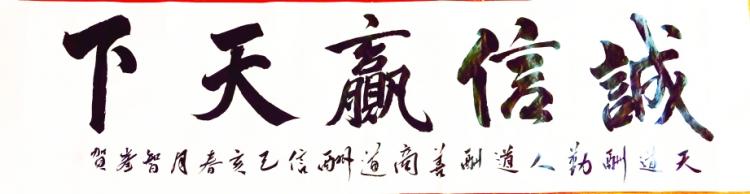 誠信贏天下
天道酬勤人道酬善商道酬信己亥春月智者賀